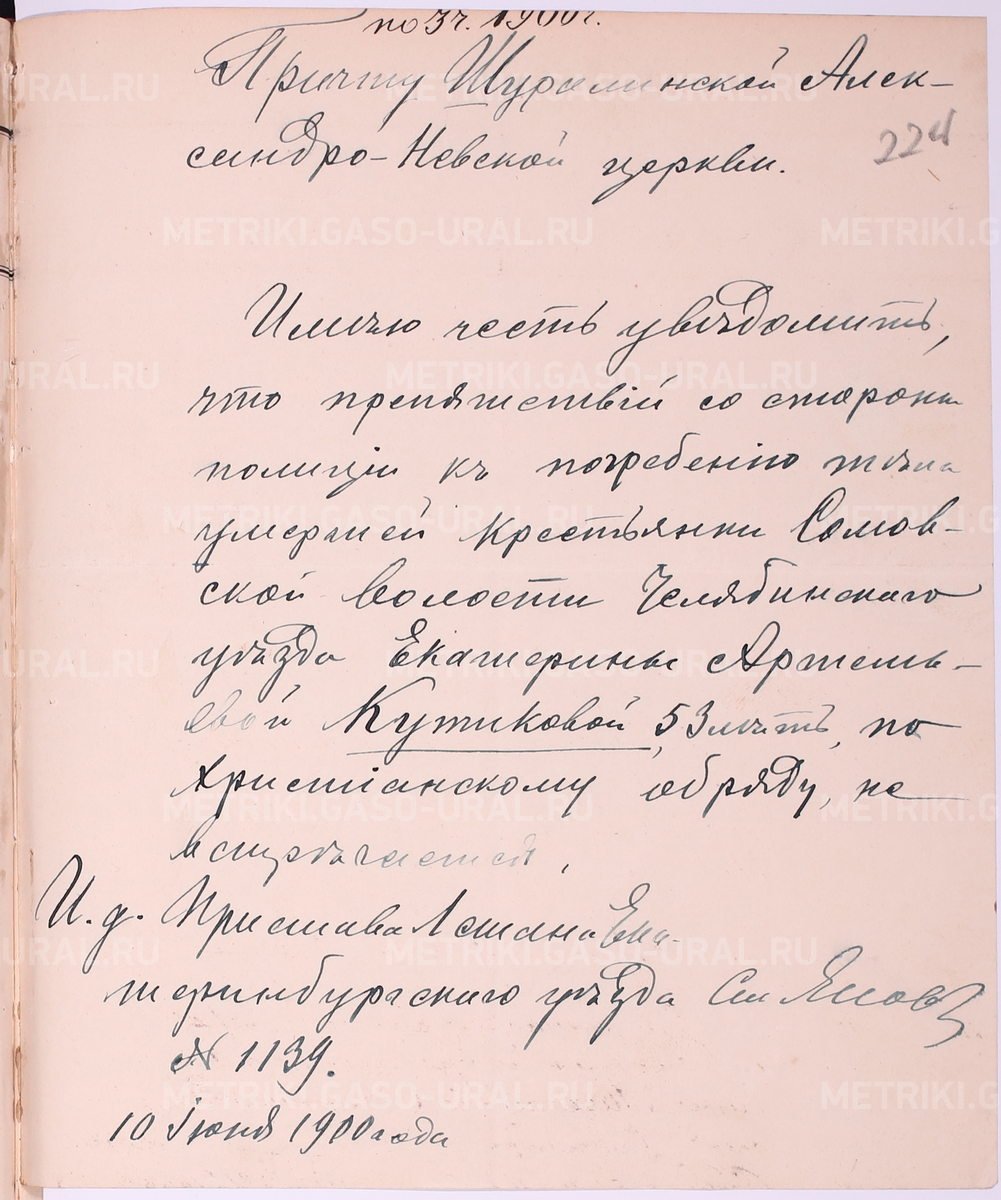 по 3 ч. 1900 г.
Причту Шуралинской Алек-
сандро-Невской церкви.
224
Имѣю честь увѣдомить,
что препятствій со стороны
полиціи къ погребенію тѣла
умершей крестьянки Сомов-
ской волости Челябинскаго
уѣзда Екатерины Артемь-
евой Кутиковой, 53 лѣтъ, по
Христіанскому обряду, не
встрѣчается.
И. д. Пристава 1 стана Ека-
теринбургскаго уѣзда
№ 1139.
10 Іюня 1900 года
METRIKI.GASO-URAL.RU